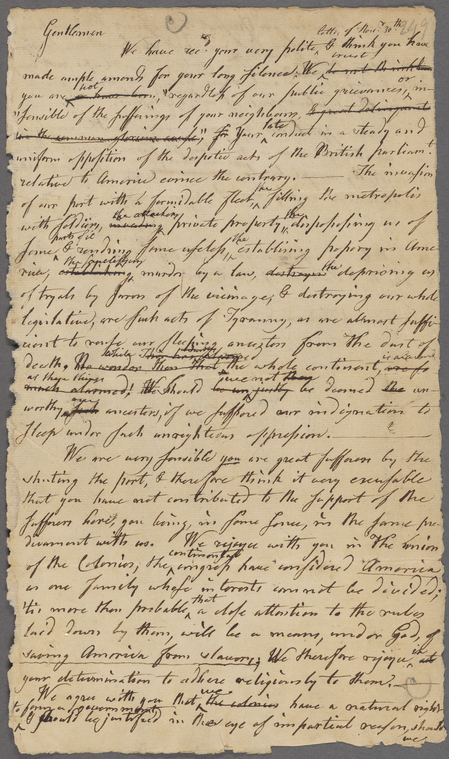 Gentlemen
of Novr. 30th 249
We have recd your very polite & think you have
made ample amends for your long silence. We trust
you are not "regardless of our public grievances, or in-
"sensible of the sufferings of your neighbours,
for your late conduct in a steady and
uniform opposition of the despotic acts of the British parliamt
relative to America evince the contrary. The invasion
of our port with a formidable fleet, the filling the metropolis
with soldiers, the attacking private property, the dispossessing us of
some & rendring parts of it some useless, the establishing popery in Ame
rica, the murder by a law, the depriving us
of tryals by Jurors of the vicinage, & destroying our whole
legislative, are such acts of Tyranny, as are almost suffi
cient to rouse our sleeping ancestors from the dust of
death, No wonder then that the whole continent,
as these things much alarmed! We should not be deemed un-
worthy such ancestors, if we suffered our indignation to
sleep under such unrighteous oppression.
We are very sensible you are great sufferers by the
shuting the port, & therefore think it very excusable
that you have not contributed to the support of the
sufferers here, you being in some sense, in the same pre-
dicament with us. We rejoyce with you in the union
of the Colonies, the continental congress have considered America
as one family whose interests can not be divided;
tis more than probable that a close attention to the rules
laid down by them, will be a means, under God, of
saving America from slavery; We therefore rejoyce in
your determination to adhere religiously to them.
We agree with you that we the colonies have a natural right
to form a government
& should be justified in the eye of impartial reason, should
we